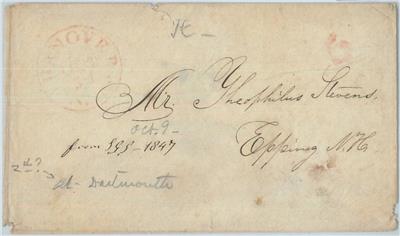 HANOVER
Mr. Theophilus Stevens.
Oct. 9 -
from SSS - 1847
Epping N.H.
at Dartmouth